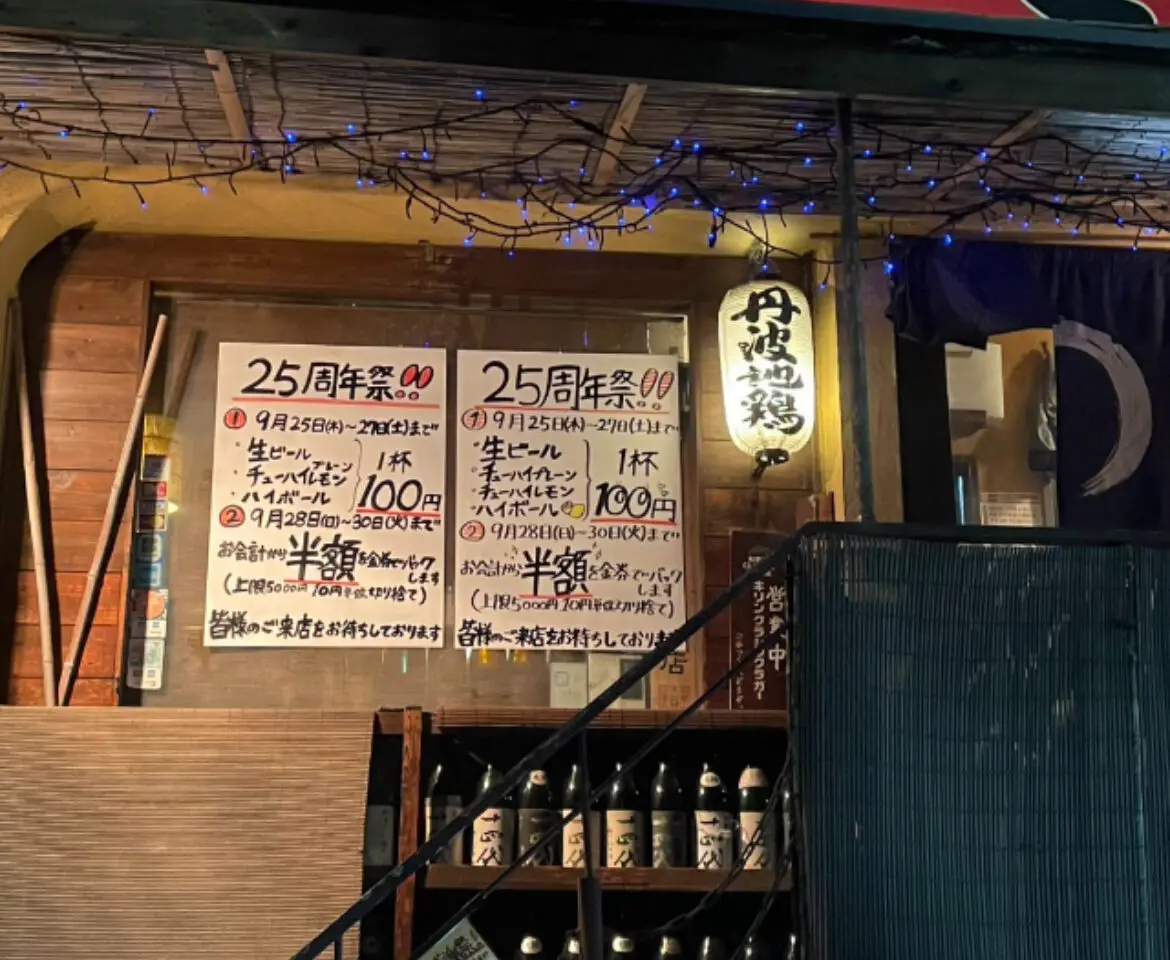 25周年祭!!
① 9月25日(木)～27日(土)まで
・生ビール
・チューハイプレーン
・チューハイレモン
・ハイボール
1杯
100円
② 9月28日(日)～30日(火)まで
お会計から半額を金券でバックします
(上限5000円 10円単位切り捨て)
皆様のご来店をお待ちしております
25周年祭!!
① 9月25日(木)～27日(土)まで
・生ビール
・チューハイプレーン
・チューハイレモン
・ハイボール
1杯
100円
② 9月28日(日)～30日(火)まで
お会計から半額を金券でバックします
(上限5000円 10円単位切り捨て)
皆様のご来店をお待ちしております
丹波地鶏
営業中
キリンクラシックラガー
店
十四代
十四代
十四代
十四代